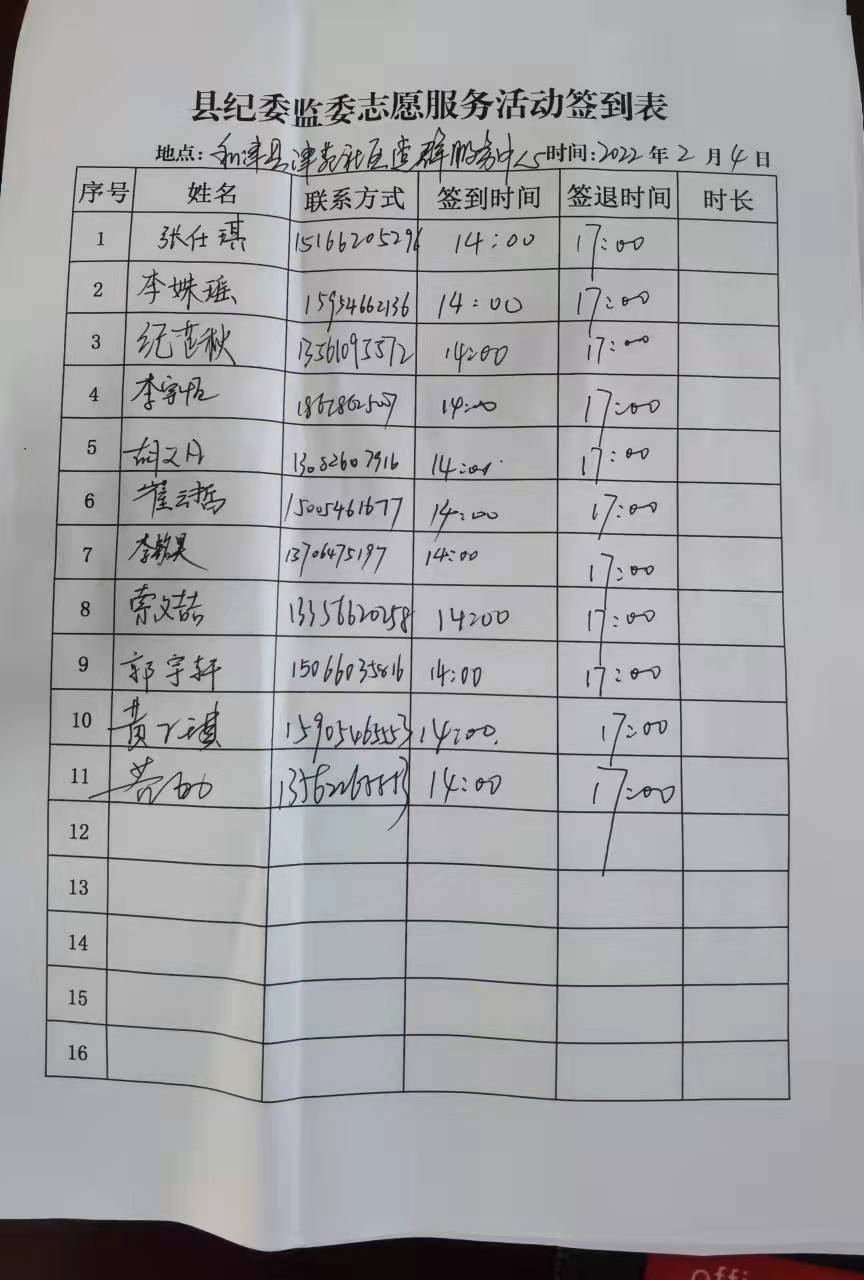 县纪委监委志愿服务活动签到表
地点：利津县津苑社区党群服务中心 时间：2022年2月4日
序号 姓名 联系方式 签到时间 签退时间 时长
1 张仕琪 15166205296 14:00 17:00
2 李姝瑶 15954662136 14:00 17:00
3 纪范秋 13561095572 14:00 17:00
4 李宇恒 14:00 17:00
5 胡文月 13082607916 14:00 17:00
6 崔云哲 15005461677 14:00 17:00
7 13706475197 14:00 17:00
8 索文喆 13356620258 14:00 17:00
9 郭宇轩 15066035816 14:00 17:00
10 14:00. 17:00
11 14:00 17:00
12
13
14
15
16
Offi